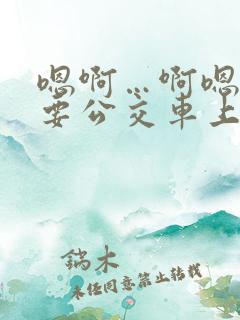 嗯啊…啊嗯
要公交车上
鎬木
未经同意禁止转载